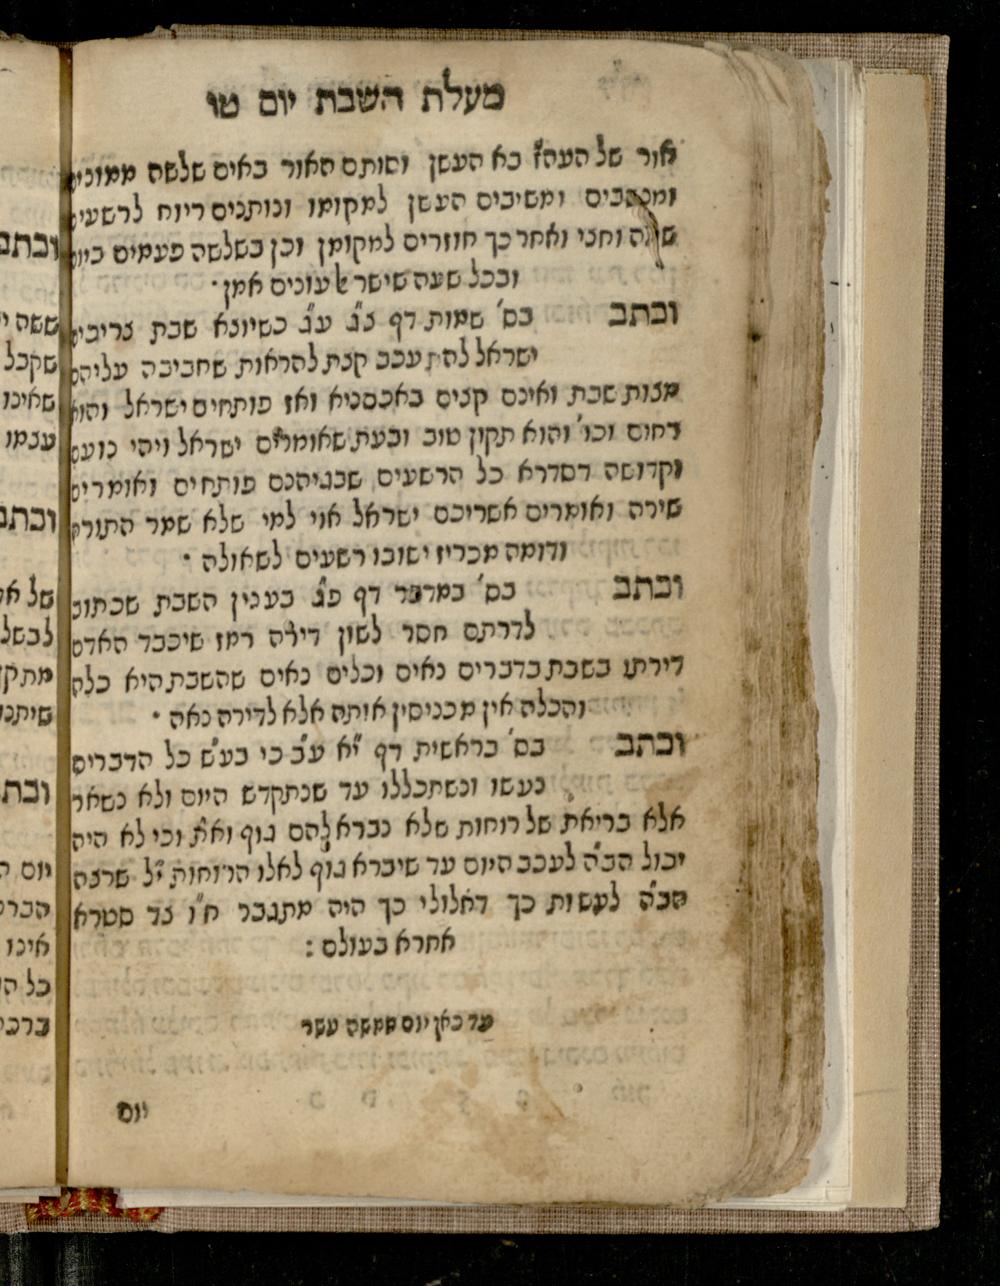 מעלת השבת יום טו
אור של העה״ז בא העשן וסותם האור באים שלשה ממונים
ומנשבים ומשיבים העשן למקומו ונותנים ריוח לרשעים
שעה וחצי ואחר כך חוזרים למקומן וכן בשלשה פעמים ביום
ובכל שעה שישראל עונים אמן ·
ובכתב בס׳ שמות דף נ״ג ע״ג כשיוצא שבת צריכים
ישראל להתעכב קצת להראות שחביבה עליהם
מצות שבת ואינם קצים באכסניא ואז פותחים ישראל והוא
רחום וכו׳ והוא תקון טוב ובעת שאומרים ישראל ויהי נועם
וקדושה דסדרא כל הרשעים שבגיהנם פותחים ואומרים
שירה ואומרים אשריכם ישראל אוי למי שלא שמר התורה
ודומה מכריז ישובו רשעים לשאולה ·
ובכתב בס׳ במדבר דף פ״ג בענין השבת שכתוב
לדרתם חסר לשון דירה רמז שיכבד האדם
דירתו בשבת בדברים נאים וכלים נאים שהשבת היא כלה
והכלה אין מכניסין אותה אלא לדירה נאה ·
ובכתב בס׳ בראשית דף י״א ע״ב כי בע״ש כל הדברים
נעשו ונשתכללו עד שנתקדש היום ולא נשאר
אלא בריאת של רוחות שלא נברא להם גוף וא״ת וכי לא היה
יכול הב״ה לעכב היום עד שיברא גוף לאלו הרוחות י״ל שרצה
הב״ה לעשות כך דאלולי כך היה מתגבר ח״ו צד סטרא
אחרא בעולם :
עד כאן יום חמשה עשר
יום